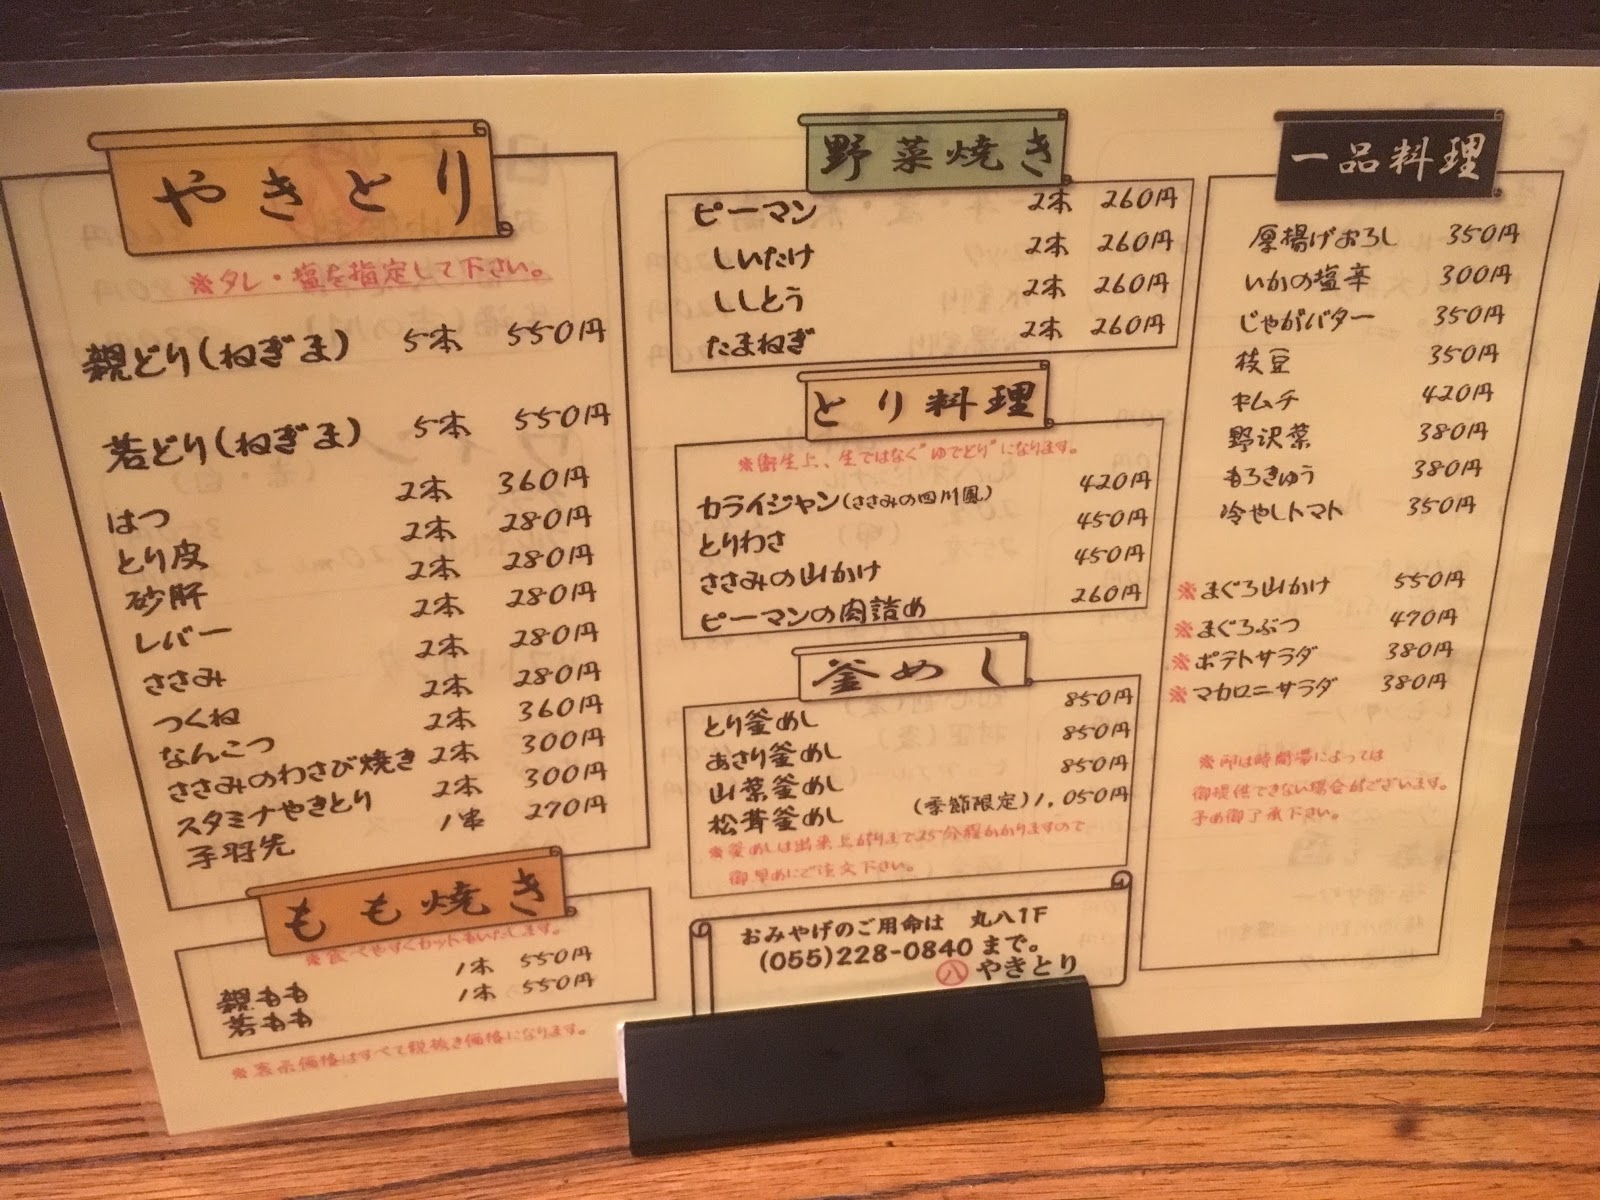 やきとり
※タレ・塩を指定して下さい。
親どり(ねぎま) 5本 550円
若どり(ねぎま) 5本 550円
はつ 2本 360円
とり皮 2本 280円
砂肝 2本 280円
レバー 2本 280円
ささみ 2本 280円
つくね 2本 280円
なんこつ 2本 360円
ささみのわさび焼き 2本 300円
スタミナやきとり 2本 300円
手羽先 1串 270円
もも焼き
※食べやすくカットもいたします。
親もも 1本 550円
若もも 1本 550円
※表示価格はすべて税抜き価格になります。
野菜焼き
ピーマン 2本 260円
しいたけ 2本 260円
ししとう 2本 260円
たまねぎ 2本 260円
とり料理
※衛生上、生ではなく"ゆでどり"になります。
カライジャン(ささみの四川風) 420円
とりわさ 450円
ささみの山かけ 450円
ピーマンの肉詰め 260円
釜めし
とり釜めし 850円
あさり釜めし 850円
山菜釜めし 850円
松茸釜めし (季節限定)1,050円
※釜めしは出来上がりまで25分程かかりますので
御早めにご注文下さい。
おみやげのご用命は 丸八1F
(055)228-0840まで。
八 やきとり
一品料理
厚揚げおろし 350円
いかの塩辛 300円
じゃがバター 350円
枝豆 350円
キムチ 420円
野沢菜 380円
もろきゅう 380円
冷やしトマト 350円
※まぐろ山かけ 550円
※まぐろぶつ 470円
※ポテトサラダ 380円
※マカロニサラダ 380円
※印は時間帯によっては
御提供できない場合がございます。
予め御了承下さい。